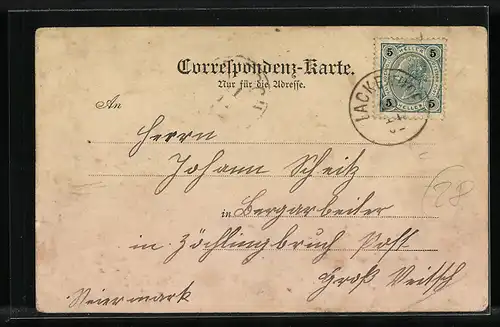 Correspondenz-Karte.
Nur für die Adresse.
5 HELLER 5
5 HELLER 5
LACKE
An
Herrn
Johann Scheitz
in Bergarbeiter
in Zöchlingbruch Post
Groß Veitsch
Steiermark
28